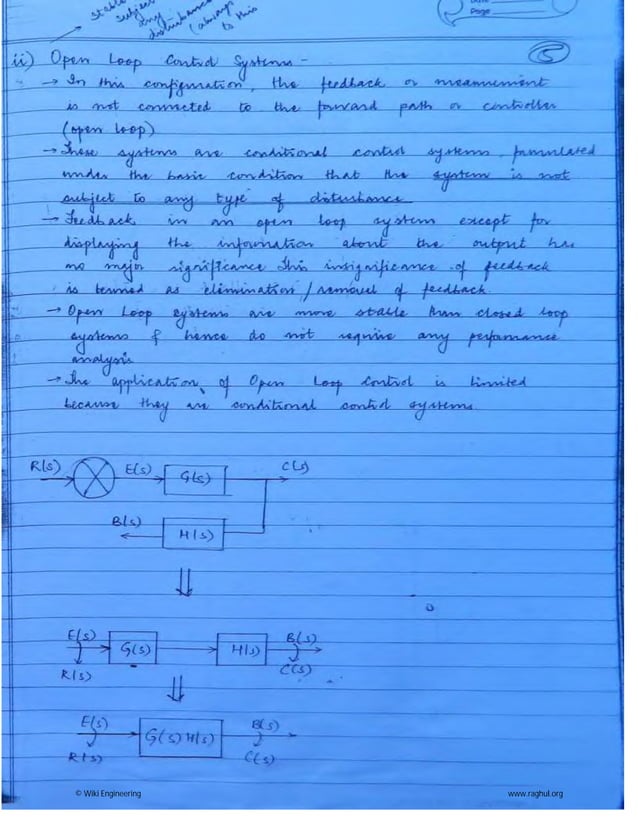 Stable
subject
any
disturbance
(always
to this
Page
5
ii) Open Loop Control Systems -
→ In this configuration, the feedback or measurement
is not connected to the forward path or controller
(open loop)
→ These systems are conditional control systems formulated
under the basic condition that the system is not
subject to any type of disturbance
→ Feedback in an open loop system except for
displaying the information about the output has
no major significance. This insignificance of feedback
is termed as elimination/removal of feedback.
→ Open Loop systems are more stable than closed loop
systems & hence do not require any performance
analysis
→ The application of Open Loop Control is limited
because they are conditional control systems.
R(s) E(s) G(s) C(s)
B(s) H(s)
⇓
E(s) G(s) H(s) B(s)
R(s) C(s)
⇓
E(s) G(s) H(s) B(s)
R(s) C(s)
© Wiki Engineering www.raghul.org